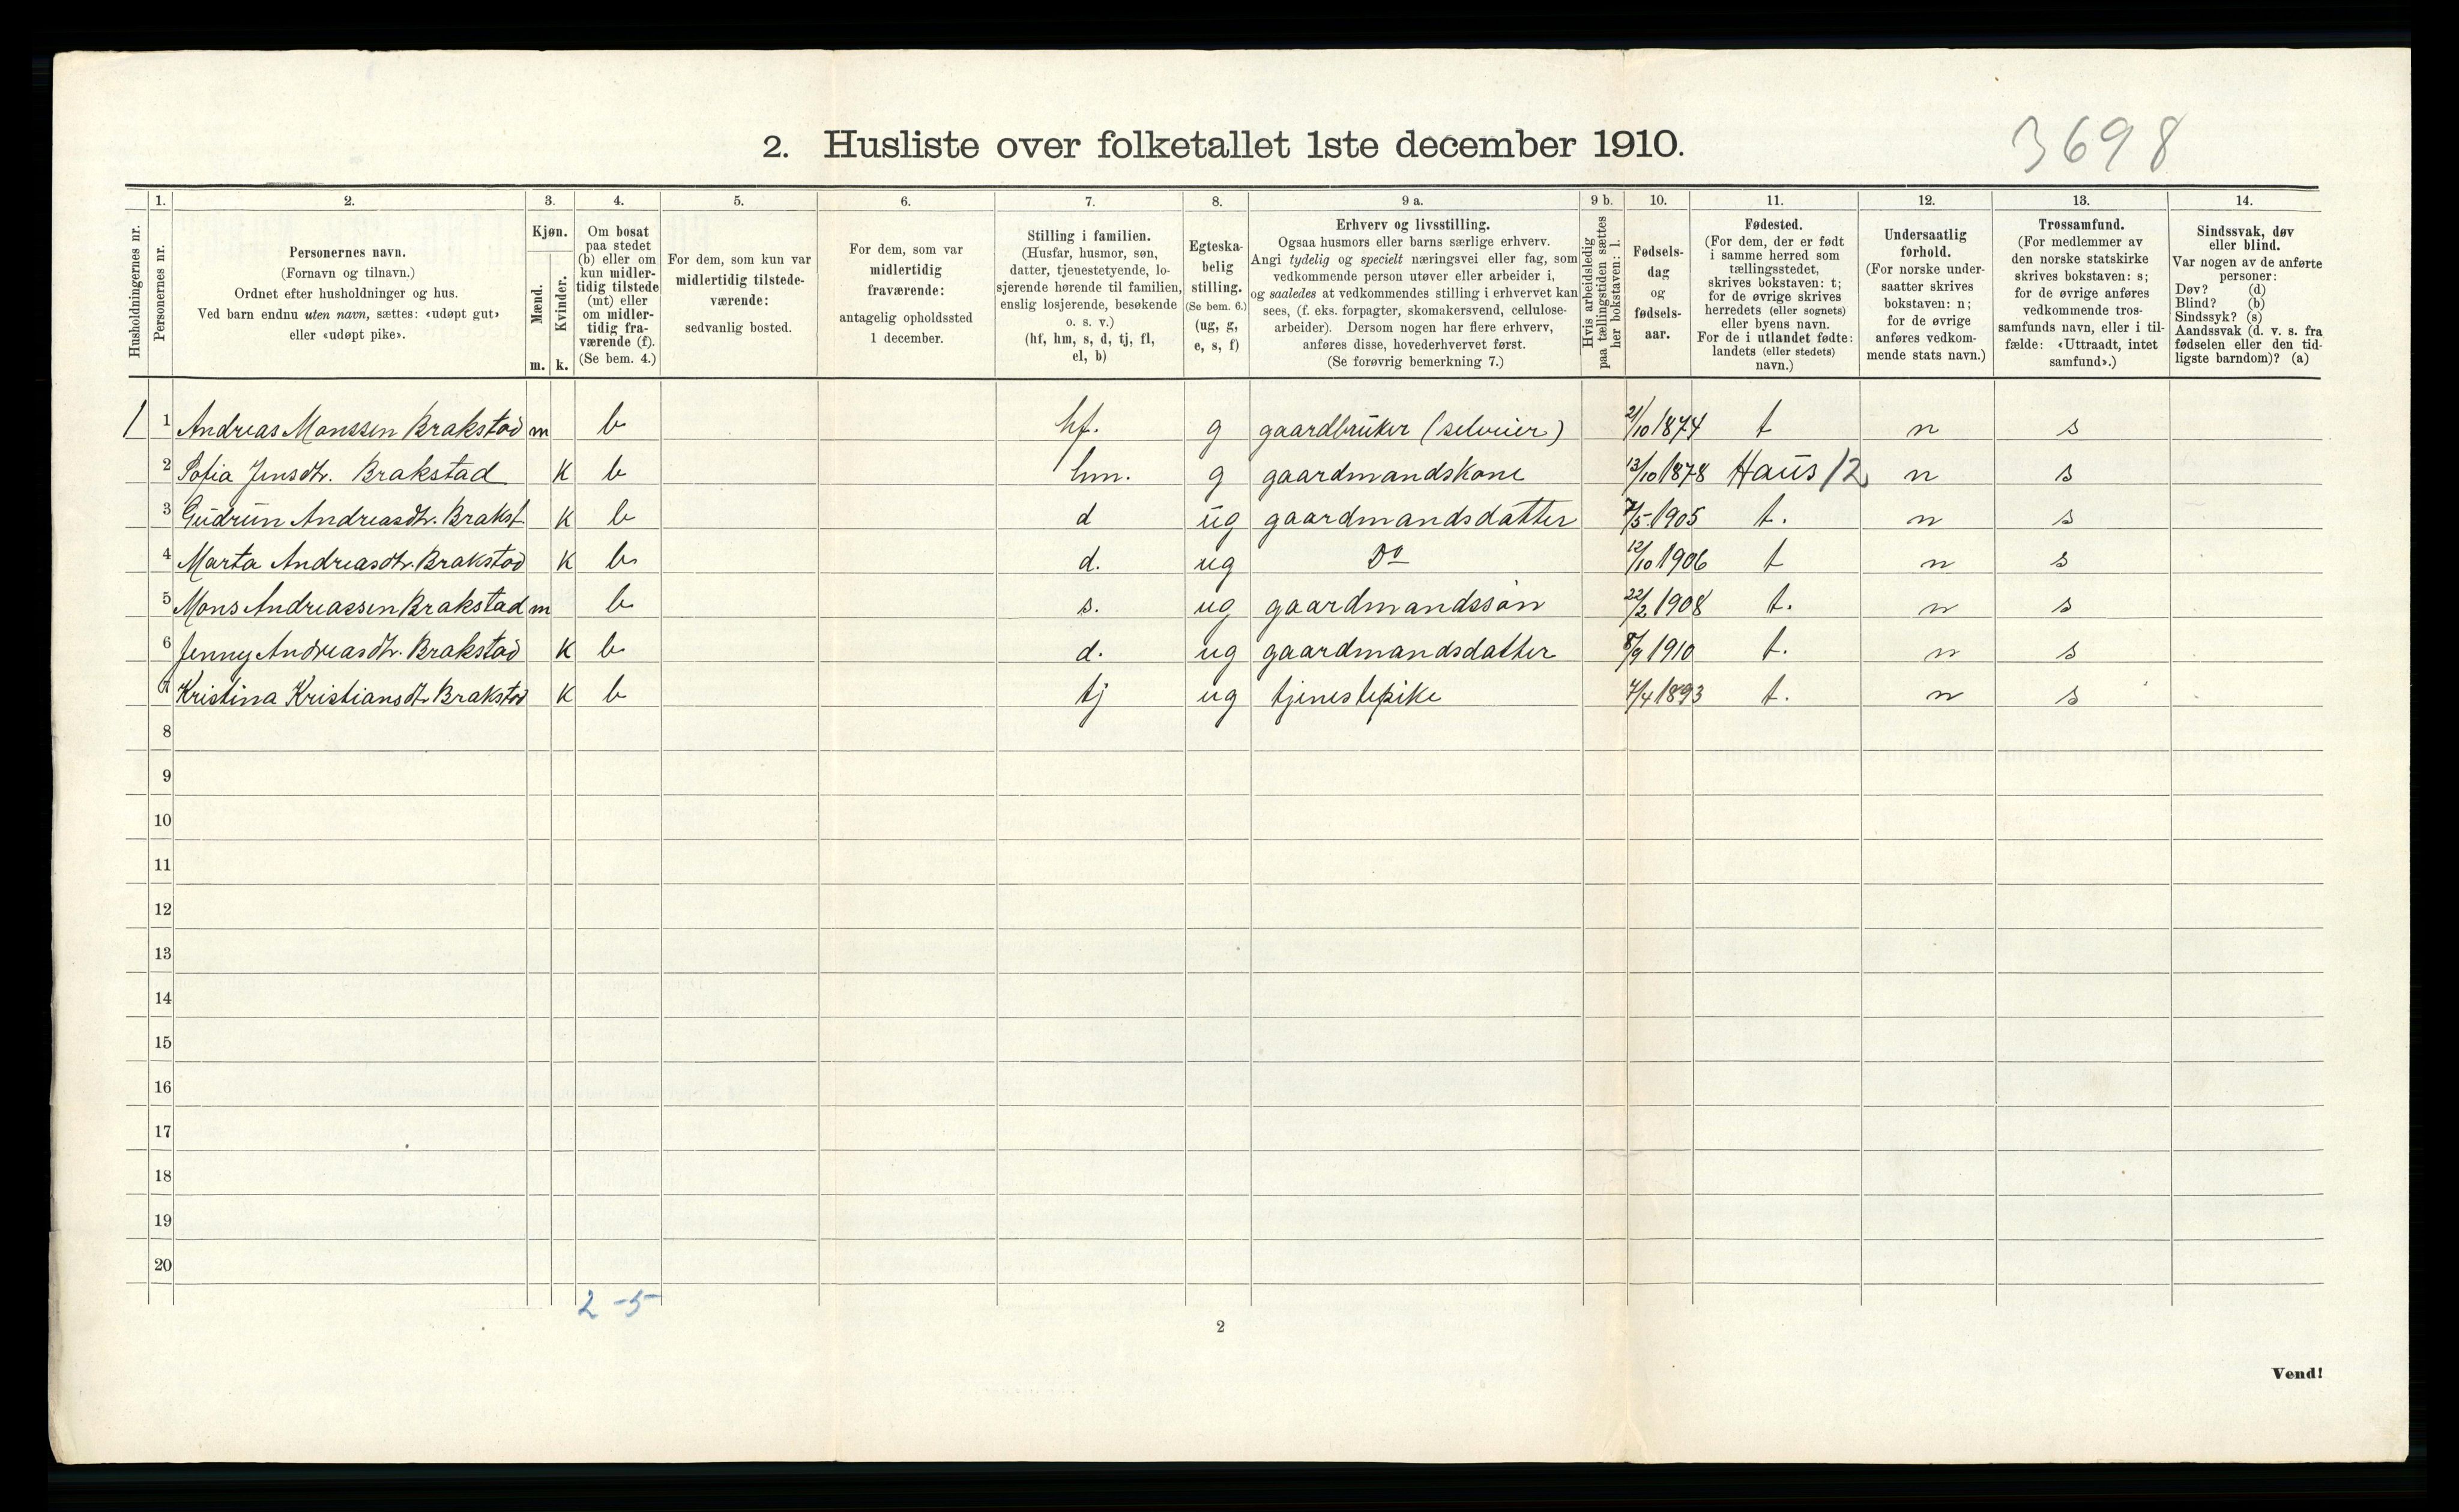 3698
2. Husliste over folketallet 1ste december 1910.
Husholdningernes nr.
1.
Personernes nr.
2.
Personernes navn.
(Fornavn og tilnavn.)
Ordnet efter husholdninger og hus.
Ved barn endnu uten navn, sættes: «udøpt gut»
eller «udøpt pike».
3.
Kjøn.
Mænd.
Kvinder.
m. k.
4.
Om bosat
paa stedet
(b) eller om
kun midler-
tidig tilstede
(mt) eller
om midler-
tidig fra-
værende (f).
(Se bem. 4.)
5.
For dem, som kun var
midlertidig tilstede-
værende:
sedvanlig bosted.
6.
For dem, som var
midlertidig
fraværende:
antagelig opholdssted
1 december.
7.
Stilling i familien.
(Husfar, husmor, søn,
datter, tjenestetyende, lo-
sjerende hørende til familien,
enslig losjerende, besøkende
o. s. v.)
(hf, hm, s, d, tj, fl,
el, b)
8.
Egteska-
belig
stilling.
(Se bem. 6.)
(ug, g,
e, s, f)
9 a.
Erhverv og livsstilling.
Ogsaa husmors eller barns særlige erhverv.
Angi tydelig og specielt næringsvei eller fag, som
vedkommende person utøver eller arbeider i,
og saaledes at vedkommendes stilling i erhvervet kan
sees, (f. eks. forpagter, skomakersvend, cellulose-
arbeider). Dersom nogen har flere erhverv,
anføres disse, hovederhvervet først.
(Se forøvrig bemerkning 7.)
9 b.
Hvis arbeidsledig
paa tællingstiden sættes
her bokstaven: l.
10.
Fødsels-
dag
og
fødsels-
aar.
11.
Fødested.
(For dem, der er født
i samme herred som
tællingsstedet,
skrives bokstaven: t;
for de øvrige skrives
herredets (eller sognets)
eller byens navn.
For de i utlandet fødte:
landets (eller stedets)
navn.)
12.
Undersaatlig
forhold.
(For norske under-
saatter skrives
bokstaven: n;
for de øvrige
anføres vedkom-
mende stats navn.)
13.
Trossamfund.
(For medlemmer av
den norske statskirke
skrives bokstaven: s;
for de øvrige anføres
vedkommende tros-
samfunds navn, eller i til-
fælde: «Uttraadt, intet
samfund».)
14.
Sindssvak, døv
eller blind.
Var nogen av de anførte
personer:
Døv? (d)
Blind? (b)
Sindssyk? (s)
Aandssvak (d. v. s. fra
fødselen eller den tid-
ligste barndom)? (a)
1 1 Andreas Monssen Brakstad m b hf. g gaardbruker (selveier) 21/10 1874 t n s
2 Sofia Jensdtr. Brakstad K b hm. g gaardmandskone 13/10 1878 Haus 12 n s
3 Gudrun Andreasdtr. Brakst. K b d ug gaardmandsdatter 7/5 1905 t. n s
4 Marta Andreasdtr. Brakstad K b d. ug Do 12/10 1906 t n s
5 Mons Andreassen Brakstad m b s. ug gaardmandssøn 22/2 1908 t. n s
6 Jenny Andreasdtr. Brakstad K b d. ug gaardmandsdatter 8/9 1910 t. n s
7 Kristina Kristiansdt. Brakstad K b tj ug tjenestepike 4/4 1893 t. n s
8
9
10
11
12
13
14
15
16
17
18
19
20
2 - 5
2
Vend!